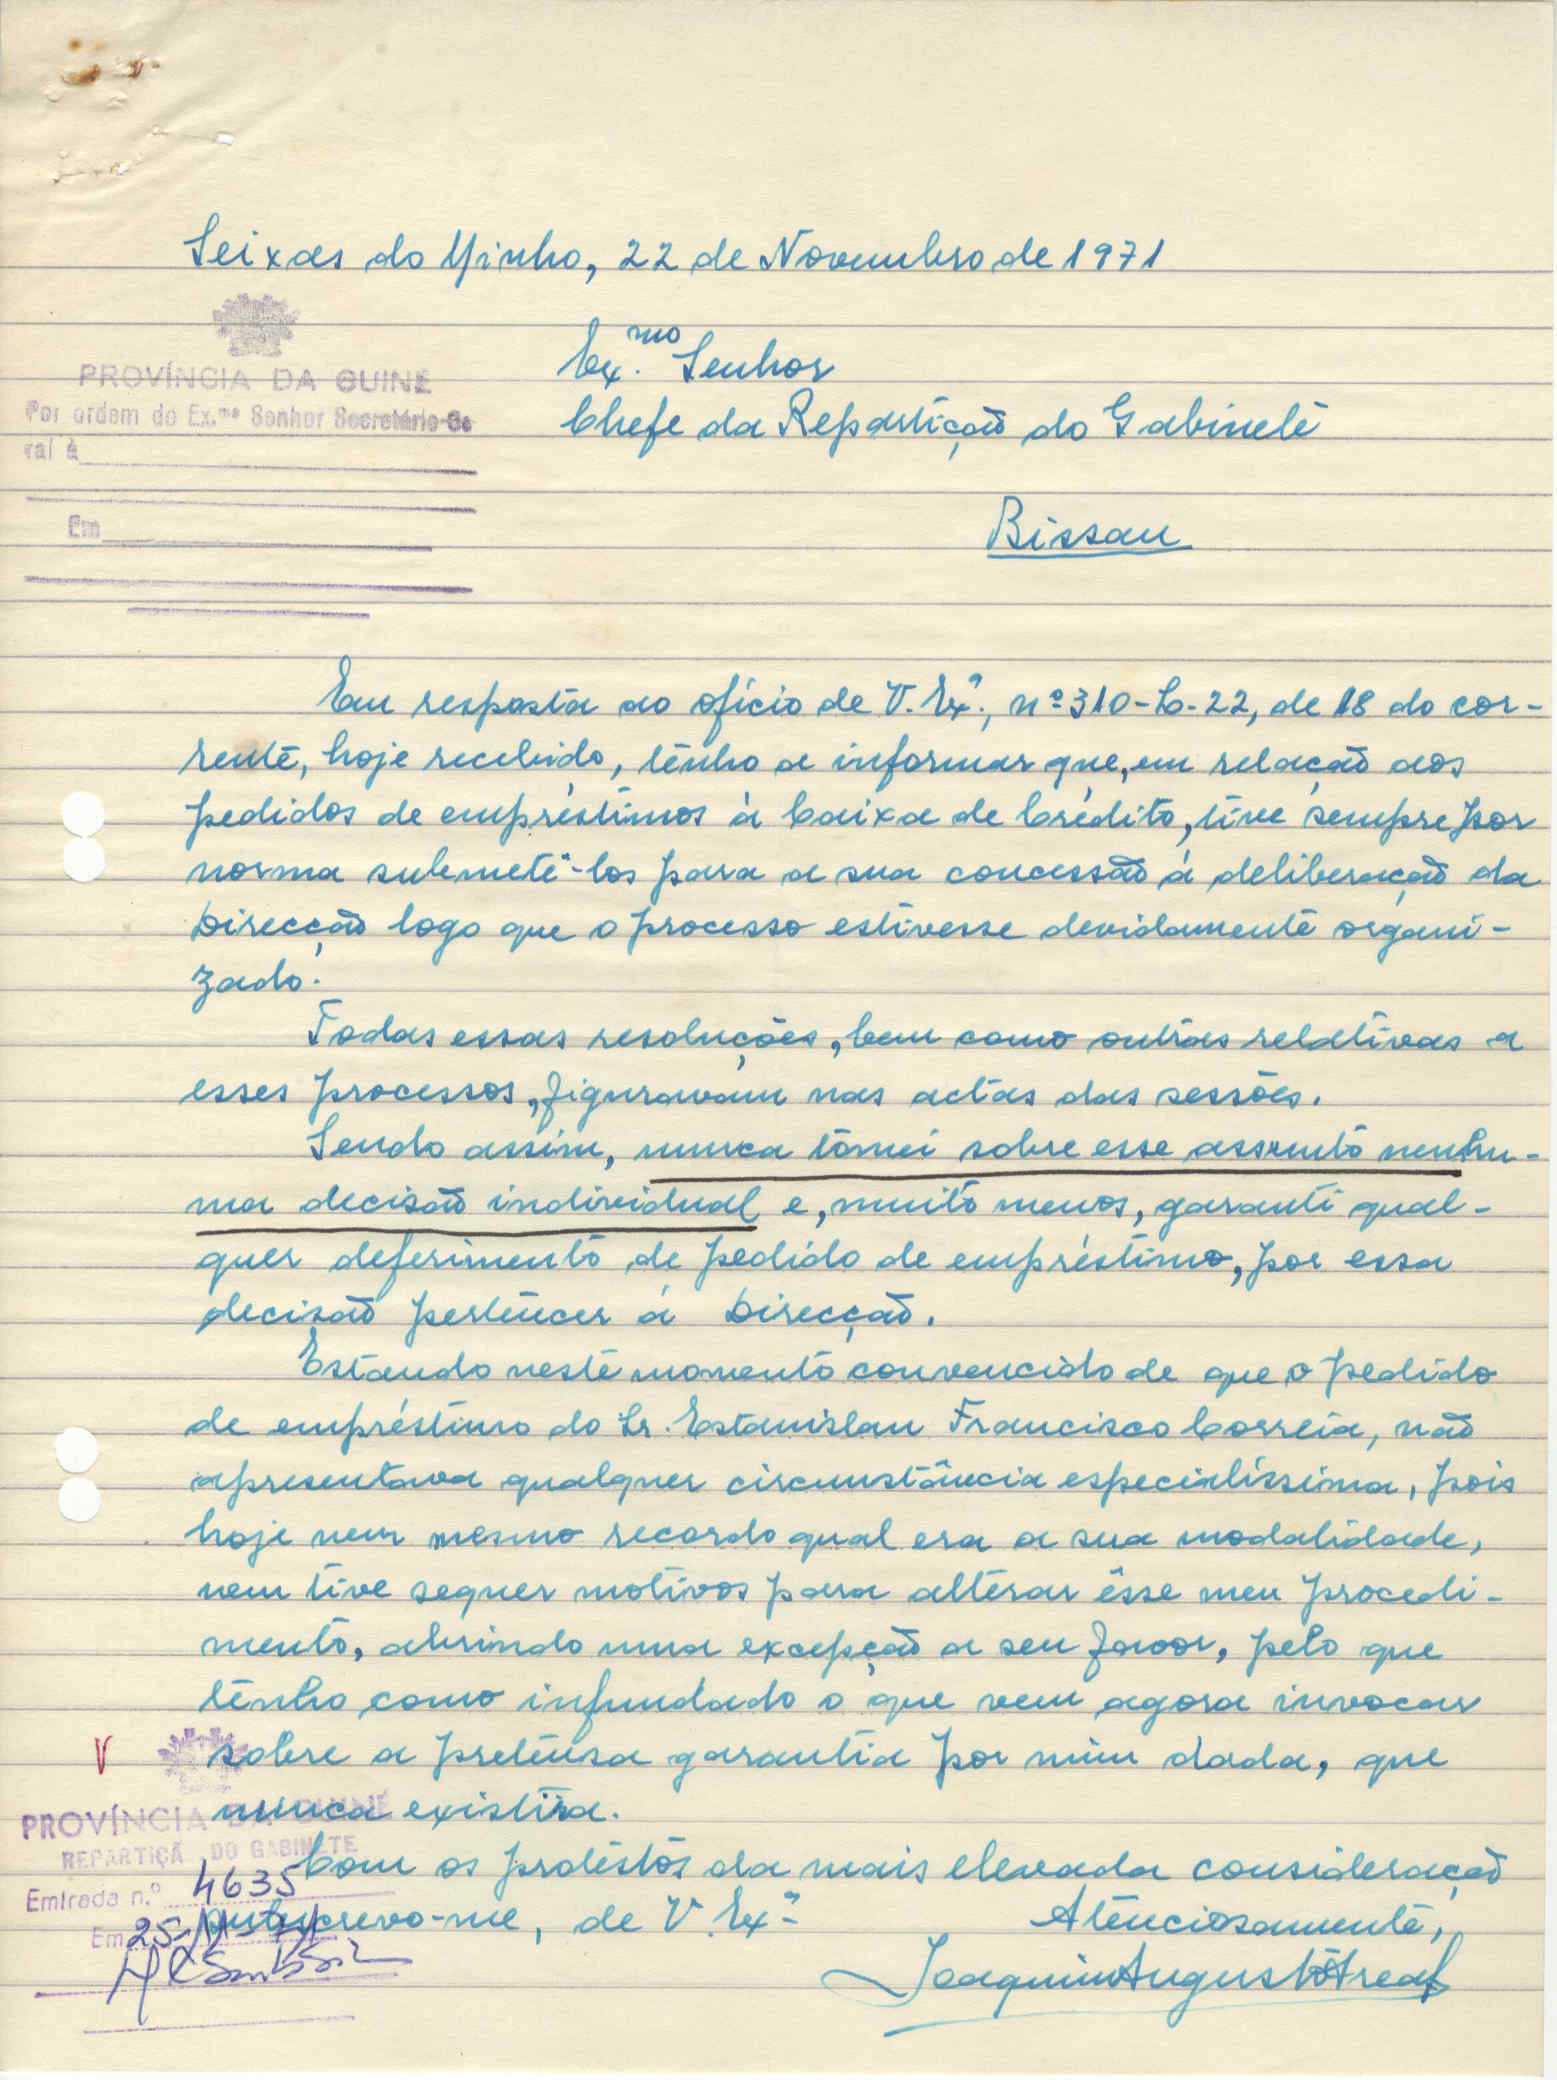 Seixas do Minho, 22 de Novembro de 1971
PROVÍNCIA DA GUINÉ
Por ordem do Ex.mo Senhor Secretário-Ge
ral à
Em
Ex.mo Senhor
Chefe da Repartição do Gabinete
Bissau
Em resposta ao ofício de V. Exª., nº 310-C-22, de 18 do cor-
rente, hoje recebido, tenho a informar que, em relação aos
pedidos de empréstimos à Caixa de Crédito, tive sempre por
norma submetê-los para a sua concessão á deliberação da
Direcção logo que o processo estivesse devidamente organi-
zado.
Todas essas resoluções, bem como outras relativas a
esses processos, figuravam nas actas das sessões.
Sendo assim, nunca tomei sobre esse assunto nenhu-
ma decisão individual e, muito menos, garanti qual-
quer deferimento de pedido de empréstimo, por essa
decisão pertencer á Direcção.
Estando neste momento convencido de que o pedido
de empréstimo do Sr. Estanislau Francisco Correia, não
apresentava qualquer circunstância especialíssima, pois
hoje nem mesmo recordo qual era a sua modalidade,
nem tive sequer motivos para alterar êsse meu procedi-
mento, abrindo uma excepção a seu favor, pelo que
tenho como infundado o que vem agora invocar
sobre a pretensa garantia por mim dada, que
nunca existira.
Com os protestos da mais elevada consideração
subscrevo-me, de V. Exª
Atenciosamente,
Joaquim Augusto Areal
V
PROVÍNCIA DA GUINÉ
REPARTIÇÃ DO GABINETE
Entrada n.º 4635
Em 25-11-71